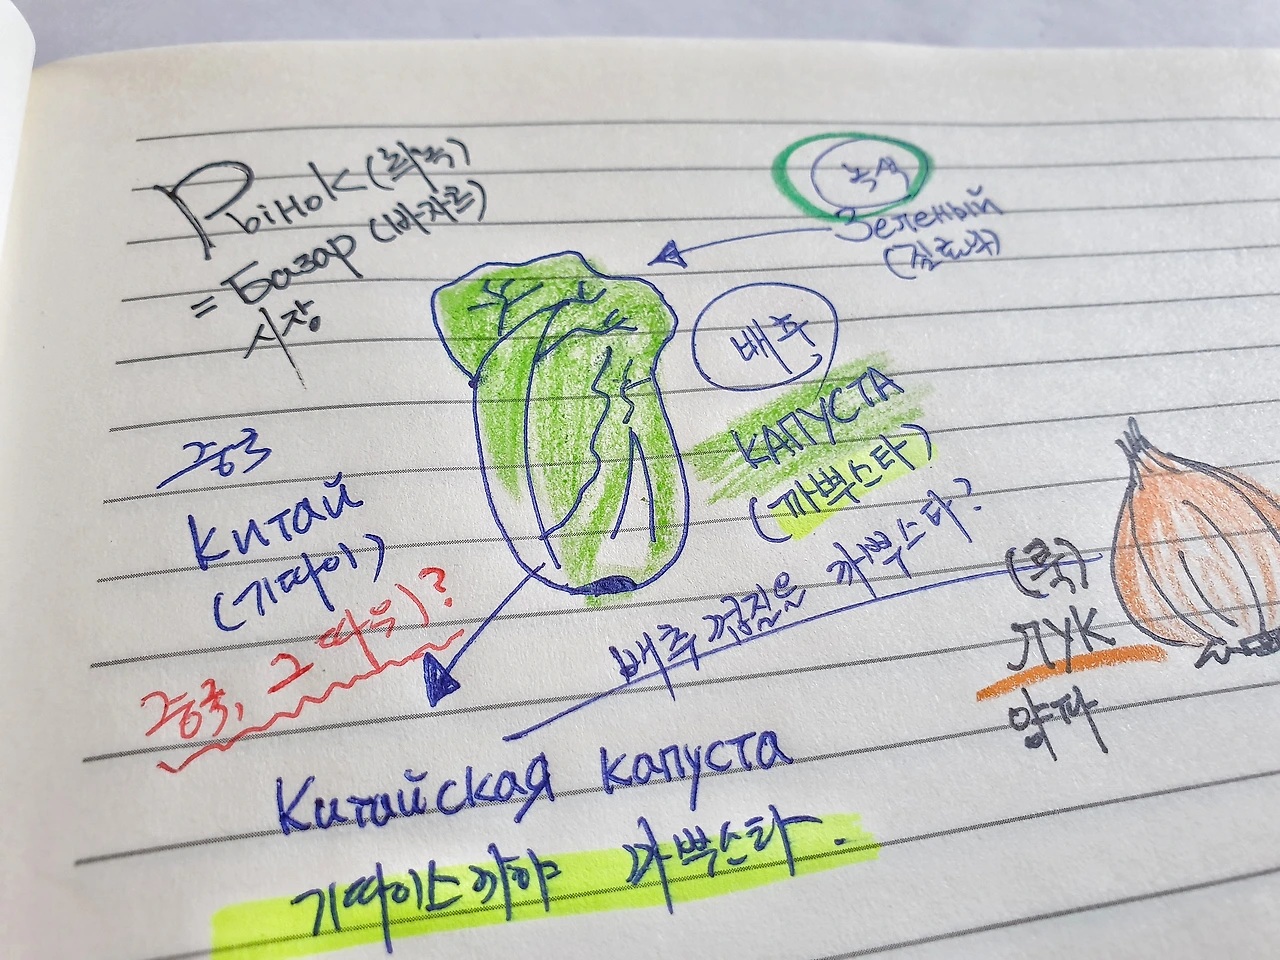 Рынок (릐녹)
= Базар (바자르)
시장
녹색
Зеленый
배추
КАПУСТА
(까뿌스타)
중국
Китай
(기따이)
중국, 그 따우)?
배추 껍질을 까뿍스타?
(룩)
ЛУК
양파
Китайская капуста
기따이스까야 까뿍스타.